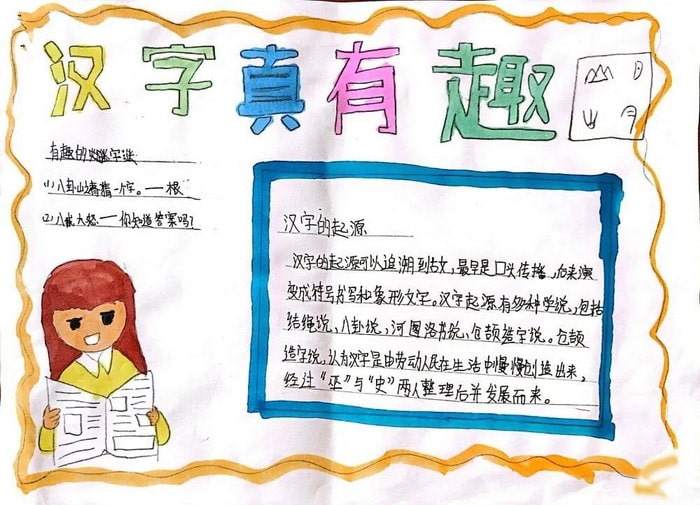 汉字真有趣
山 月
有趣的字谜
(1)八 山 猜一个字。一根
(2)八 大 —你知道答案吗?
汉字的起源
汉字的起源可以追溯到古文,最早是口头传播,后来演
变成符号书写和象形文字。汉字起源有多种学说,包括
结绳说,八卦说,河图洛书说,仓颉造字说。仓颉
造字说,认为汉字是由劳动人民在生活中慢慢创造出来,
经过“巫”与“史”两人整理后并发展而来。